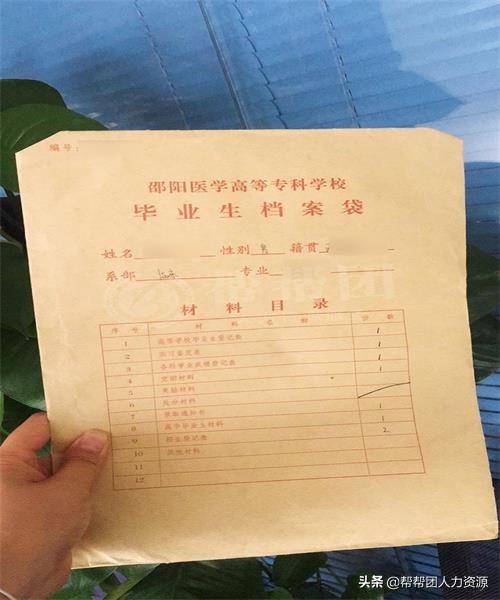 编号:
邵阳医学高等专科学校
毕业生档案袋
姓名 性别 男 籍贯
系部 临床 专业
帮帮团
材料目录
序号 材料名称 份数
1 高等学校毕业生登记表 1
2 实习鉴定表 1
3 各科学业成绩登记表 1
4 党团材料
5 奖励材料
6 处分材料
7 录取通知书 1
8 高中毕业生材料 1
9 招生登记表 2
10 其他材料
11
12
头条 @帮帮团人力资源